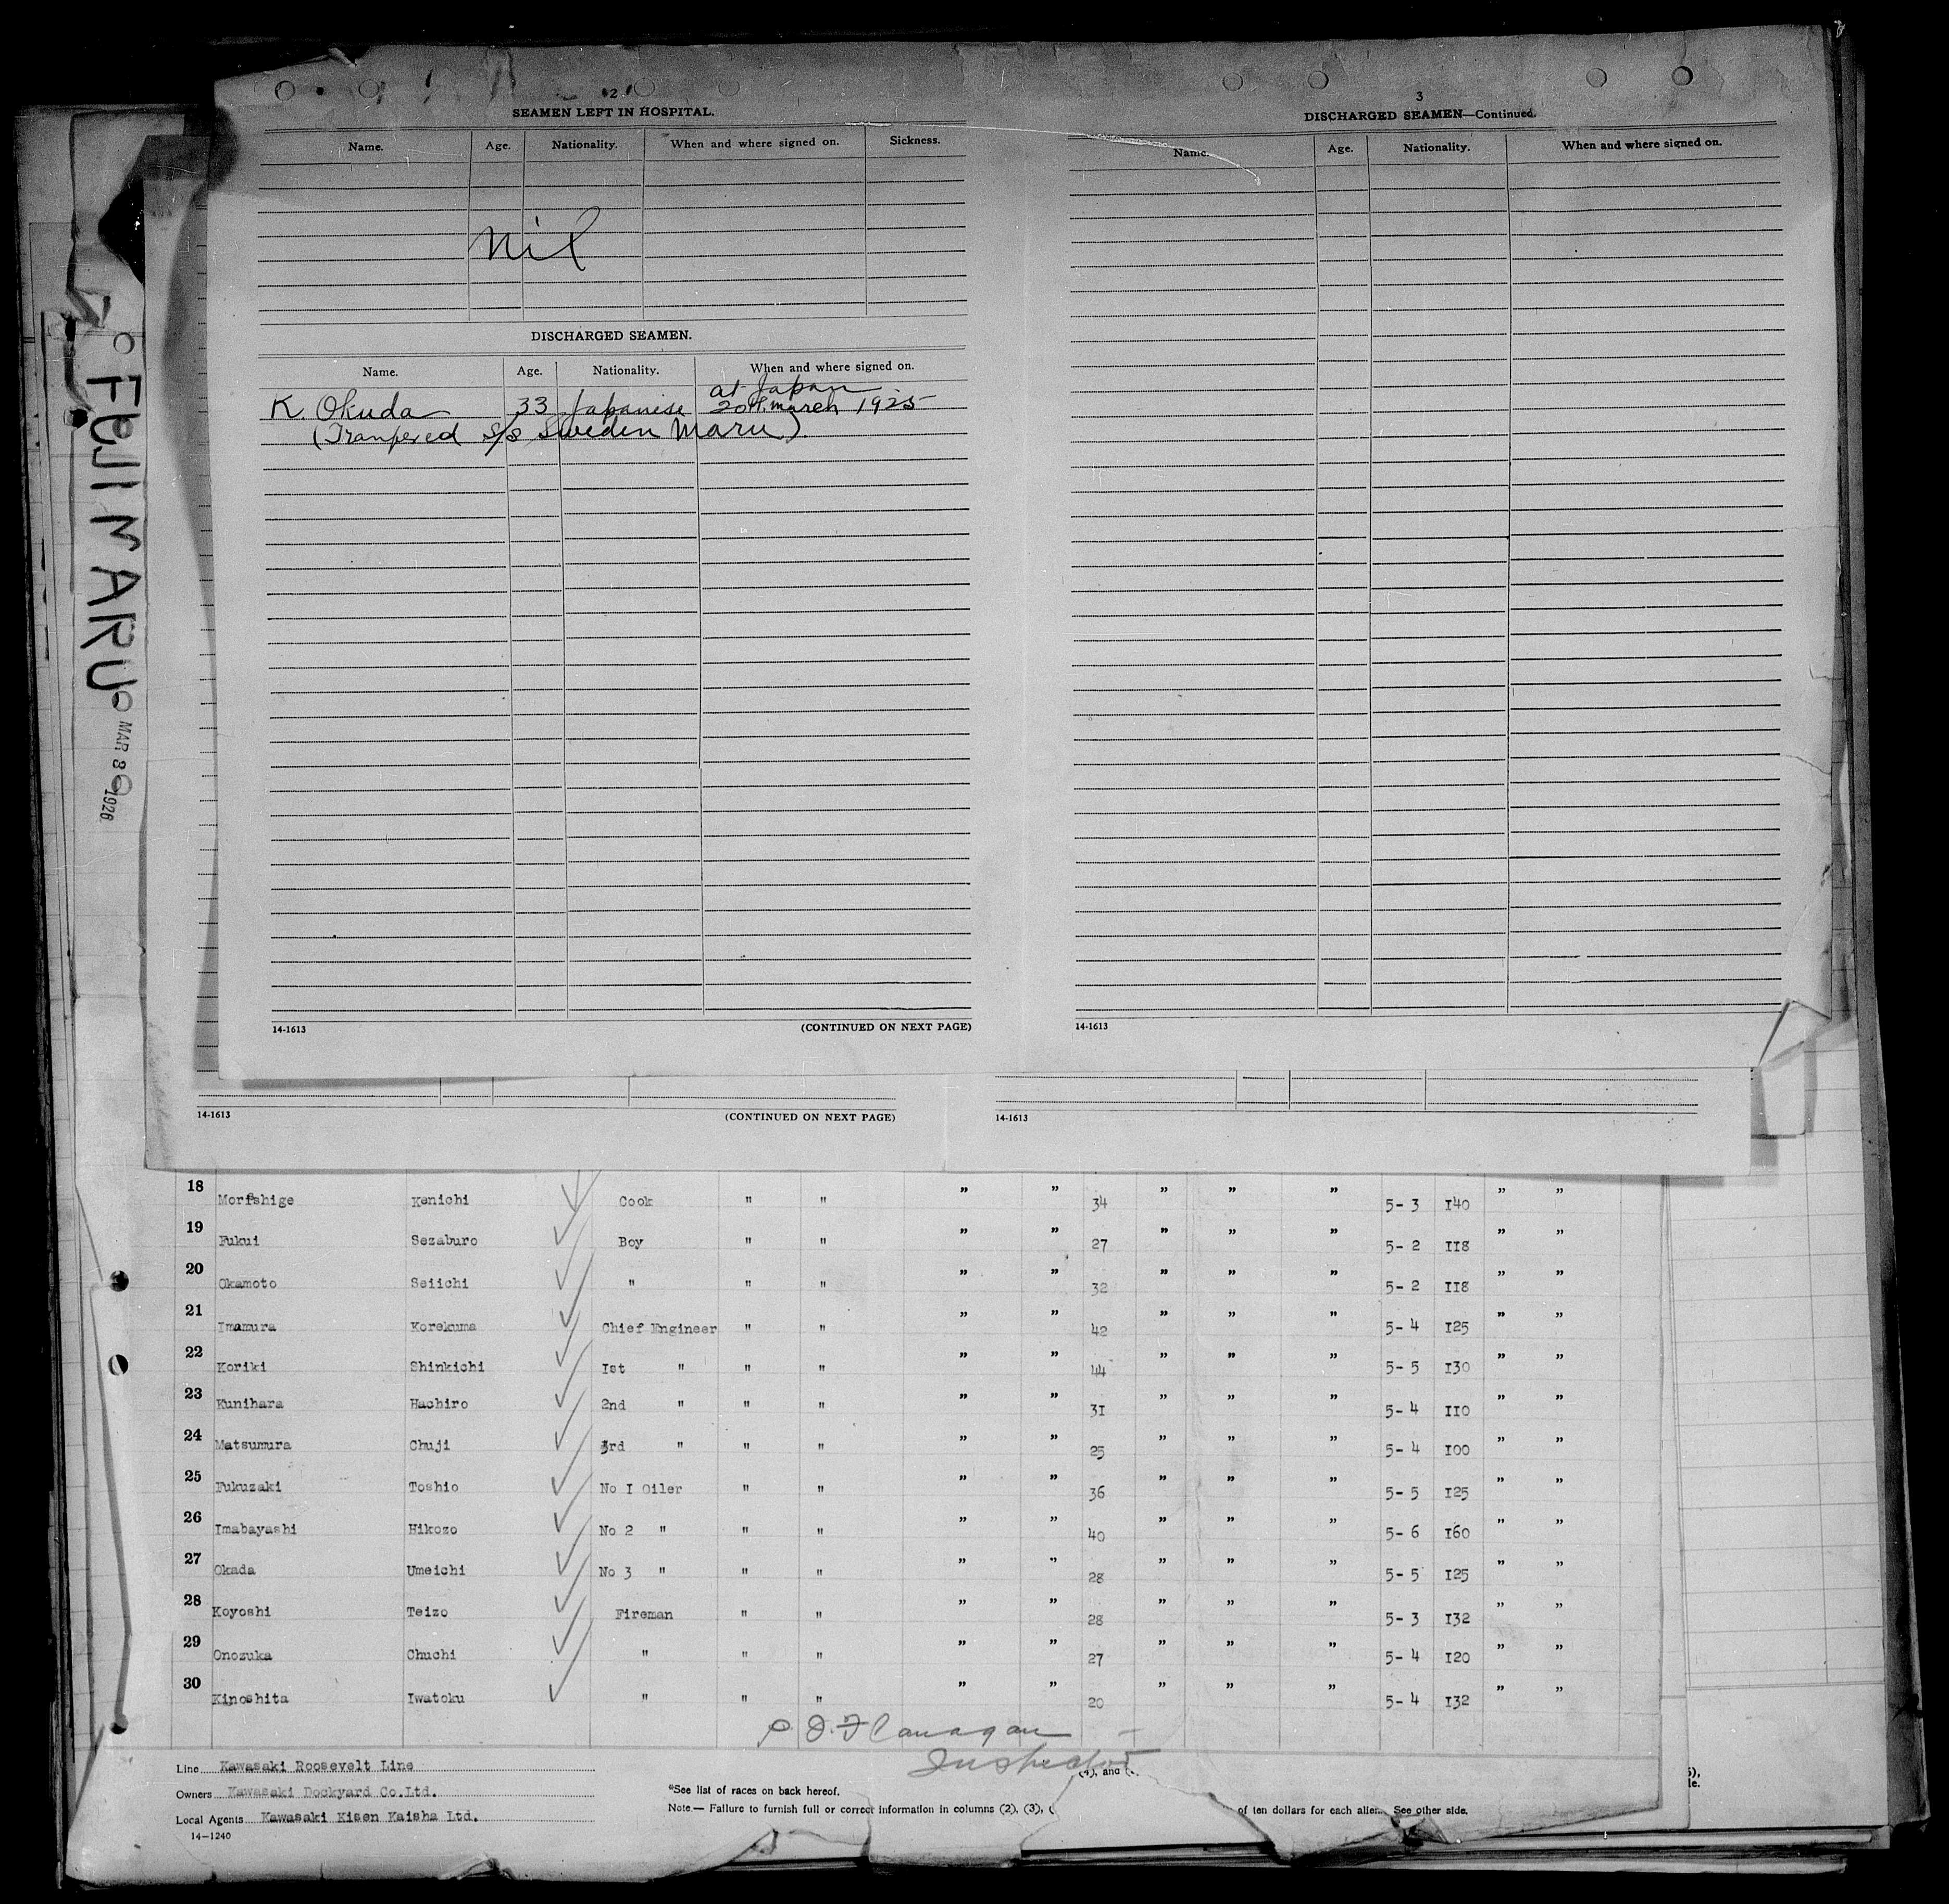 FUJI MARU
MAR 8 1926
2
SEAMEN LEFT IN HOSPITAL.
Name. Age. Nationality. When and where signed on. Sickness.
Nil
DISCHARGED SEAMEN.
Name. Age. Nationality. When and where signed on.
at Japan
K. Okuda 33 Japanese 20th. march 1925
(Tranfered S/S Sweden Maru).
14-1613 (CONTINUED ON NEXT PAGE)
3
DISCHARGED SEAMEN—Continued.
Name. Age. Nationality. When and where signed on.
14-1613
14-1613 (CONTINUED ON NEXT PAGE) 14-1613
18 Morishige Kenichi ✓ Cook " " " " 34 " " " 5- 3 I40 " "
19 Fukui Sezaburo ✓ Boy " " " " 27 " " " 5- 2 II8 " "
20 Okamoto Seiichi ✓ " " " " " 32 " " " 5- 2 II8 " "
21 Imamura Korekuma ✓ Chief Engineer " " " " 42 " " " 5- 4 I25 " "
22 Koriki Shinkichi ✓ Ist " " " " " 44 " " " 5- 5 I30 " "
23 Kunihara Hachiro ✓ 2nd " " " " " 3I " " " 5- 4 IIO " "
24 Matsumura Chuji ✓ 3rd " " " " " 25 " " " 5- 4 I00 " "
25 Fukuzaki Toshio ✓ No I Oiler " " " " 36 " " " 5- 5 I25 " "
26 Imabayashi Hikozo ✓ No 2 " " " " " 40 " " " 5- 6 I60 " "
27 Okada Umeichi ✓ No 3 " " " " " 28 " " " 5- 5 I25 " "
28 Koyoshi Teizo ✓ Fireman " " " " 28 " " " 5- 3 I32 " "
29 Onozuka Chuchi ✓ " " " " " 27 " " " 5- 4 I20 " "
30 Kinoshita Iwatoku ✓ " " " " " 20 " " " 5- 4 I32 " "
P. J. Flanagan
Inspector
Line Kawasaki Roosevelt Line
Owners Kawasaki Dockyard Co.Ltd.
Local Agents Kawasaki Kisen Kaisha Ltd.
14—1240
(4), and (
*See list of races on back hereof.
Note.— Failure to furnish full or correct information in columns (2), (3), (
of ten dollars for each alien. See other side.